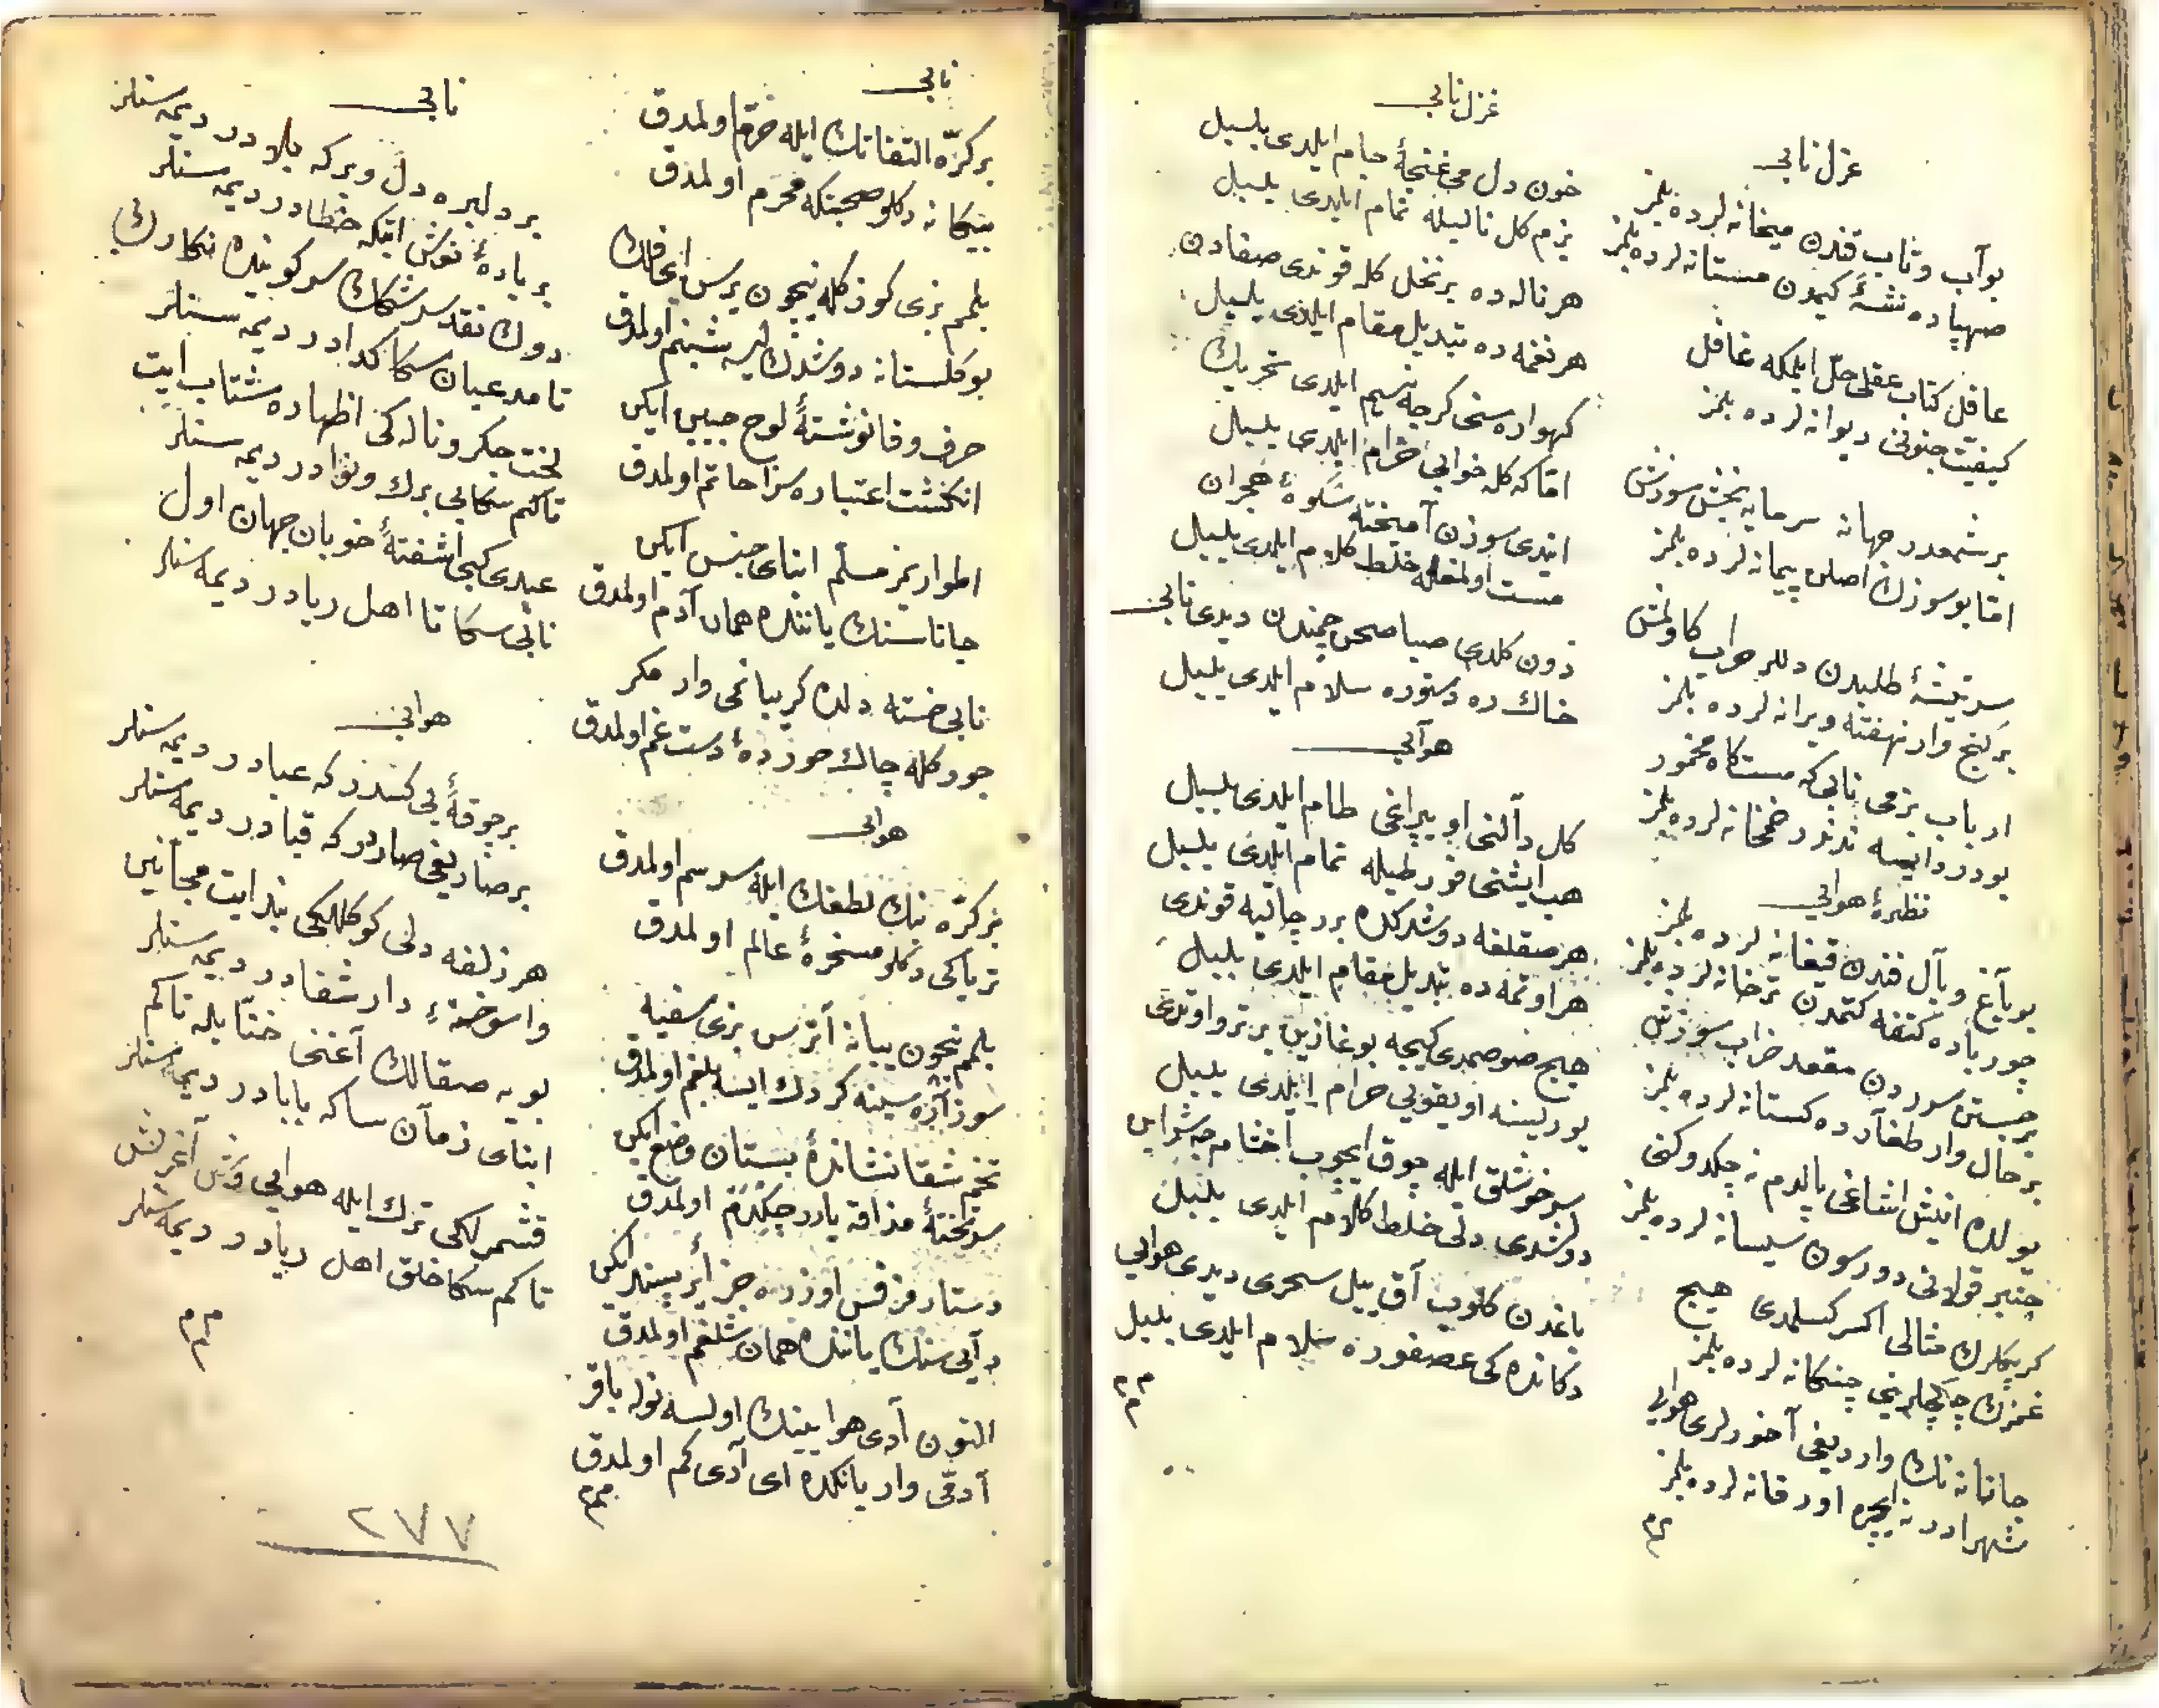 غزل نابی
بو آب و تاب قندن میخانه لرده بلمز
صهپاده نشئهٔ کیمدن مستانه لرده بلمز
عاقل کتاب عقلی حلّ ایلمکه غافل
کیفیت جنونی دیوانه لرده بلمز
بر شمعدر جهانه سرمایه بخش سوزش
اما بو سوزک اصلن پیمانه لرده بلمز
سر تیشهٔ طلبدن دللر خراب کاوش
بر کنج وار نهفته ویرانه لرده بلمز
ارباب بزمی نابی که مست که مخمور
بو درد ایسه ندندر خمخانه لرده بلمز
نظیرهٔ هوایی
بو یاغ و بال قندن قیغانه لرده بلمز
بر حال وار طغارده کستانه لرده بلمز
یولده اینش اشاغی پالدم نه چکدوکنی
چنبر قولانی دورسون سیسانه لرده بلمز
کرپکلرک مثالی اکسر کسلمدی هیچ
غمزک چکیچلرینی چنکانه لرده بلمز
جانانه نک وار دیغی آخورلری هوایی
شهر ادرنه ایچره اورخانه لرده بلمز
غزل نابی
خون دل می غنچهٔ جام ایلدی بلبل
بزم کل نالیله تمام ایلدی بلبل
هر ناله ده بر نخل کله قوندی صفادن
هر نغمه ده تبدیل مقام ایلدی بلبل
کهواره سنی کرچه نسیم ایلدی تحریک
اما که کله خوابی حرام ایلدی بلبل
ایتدی سوزن آمیخته شکوهٔ هجران
مست اولمغله خلط کلام ایلدی بلبل
دون کلدی صبا صحن چمندن دیدی نابی
خاک ره دستوره سلام ایلدی بلبل
هوایی
کل دالنی او یپراغی طام ایلدی بلبل
هب ایشنی قورطیله تمام ایلدی بلبل
هر صقلغه دوشدکده بر چاتیه قوندی
هر اوتمه ده تبدیل مقام ایلدی بلبل
هیچ صوصمدی کیجه بوغازین یرتر و اوتدی
بورلیسنه اویقویی حرام ایلدی بلبل
سرخوشلق ایله چوق ایچوب اخشام
دولشدی دلی خلط کلام ایلدی بلبل
باغدن کلوب آق ییل سحری دیدی هوایی
دکانده کی عصفوره سلام ایلدی بلبل
نابی
بر کرّه التفاتک ایله خرّم اولمدق
بیکانه دکلو صحبتکه محرم اولمدق
بلمم بزی کوز کله نیچون برسن ای فلک
بو کلستانه دوشدک ایسه شبنم اولمدق
حرف وفا نوشتهٔ لوح جبین ایکن
انکشت اعتباره سزا خاتم اولمدق
اطواریمز مسلم ابنای جنس ایکن
جانا سنک یاننده همان آدم اولمدق
نابی خسته دلده کریبانمی وار مکر
جورکله چاک خورده دست غم اولمدق
هوایی
بر کرّه نک لطفک ایله سرسم اولمدق
تریاکی دکلر مسخرهٔ عالم اولمدق
بلمم نیچون یبانه آترس بزی سفیه
تخم شقا نشاندهٔ بستان وضع ایکن
دایی سنک یاننده همان شلغم اولمدق
التون آدی هوایینک اولسه نوله باقر
آدی وار یانکده ای آدی کم اولمدق
نابی
بر دلبره دل ویر که بلادر دیمه سنلر
بر باده نوش ایتکه خطادر دیمه سنلر
دوک نقد سرشکک سر کوینده نکارک
تا مدعیان سکا کدادر دیمه سنلر
لخت جکر و ناله کی اظهاره شتاب ایت
تا کم سکا بی برک و نوادر دیمه سنلر
عیدی کبی اشفتهٔ خوبان جهان اول
نابی سکا تا اهل ریادر دیمه سنلر
هوایی
بر چوقهٔ بی کسدر که عبادر دیمه سنلر
بر صاریغی صاردر که قبادر دیمه سنلر
هر زلفه دلی کوکلکی بند ایت مجانین
واسوختهء دار شفادر دیمه سنلر
بویه صقالک آغنی خنّا یله تا کم
ابنای زمان ساکه بابادر دیمه سنلر
قشمرلکی ترک ایله هوایی
تا کم سکا خلق اهل ریادر دیمه سنلر
۲۷۷